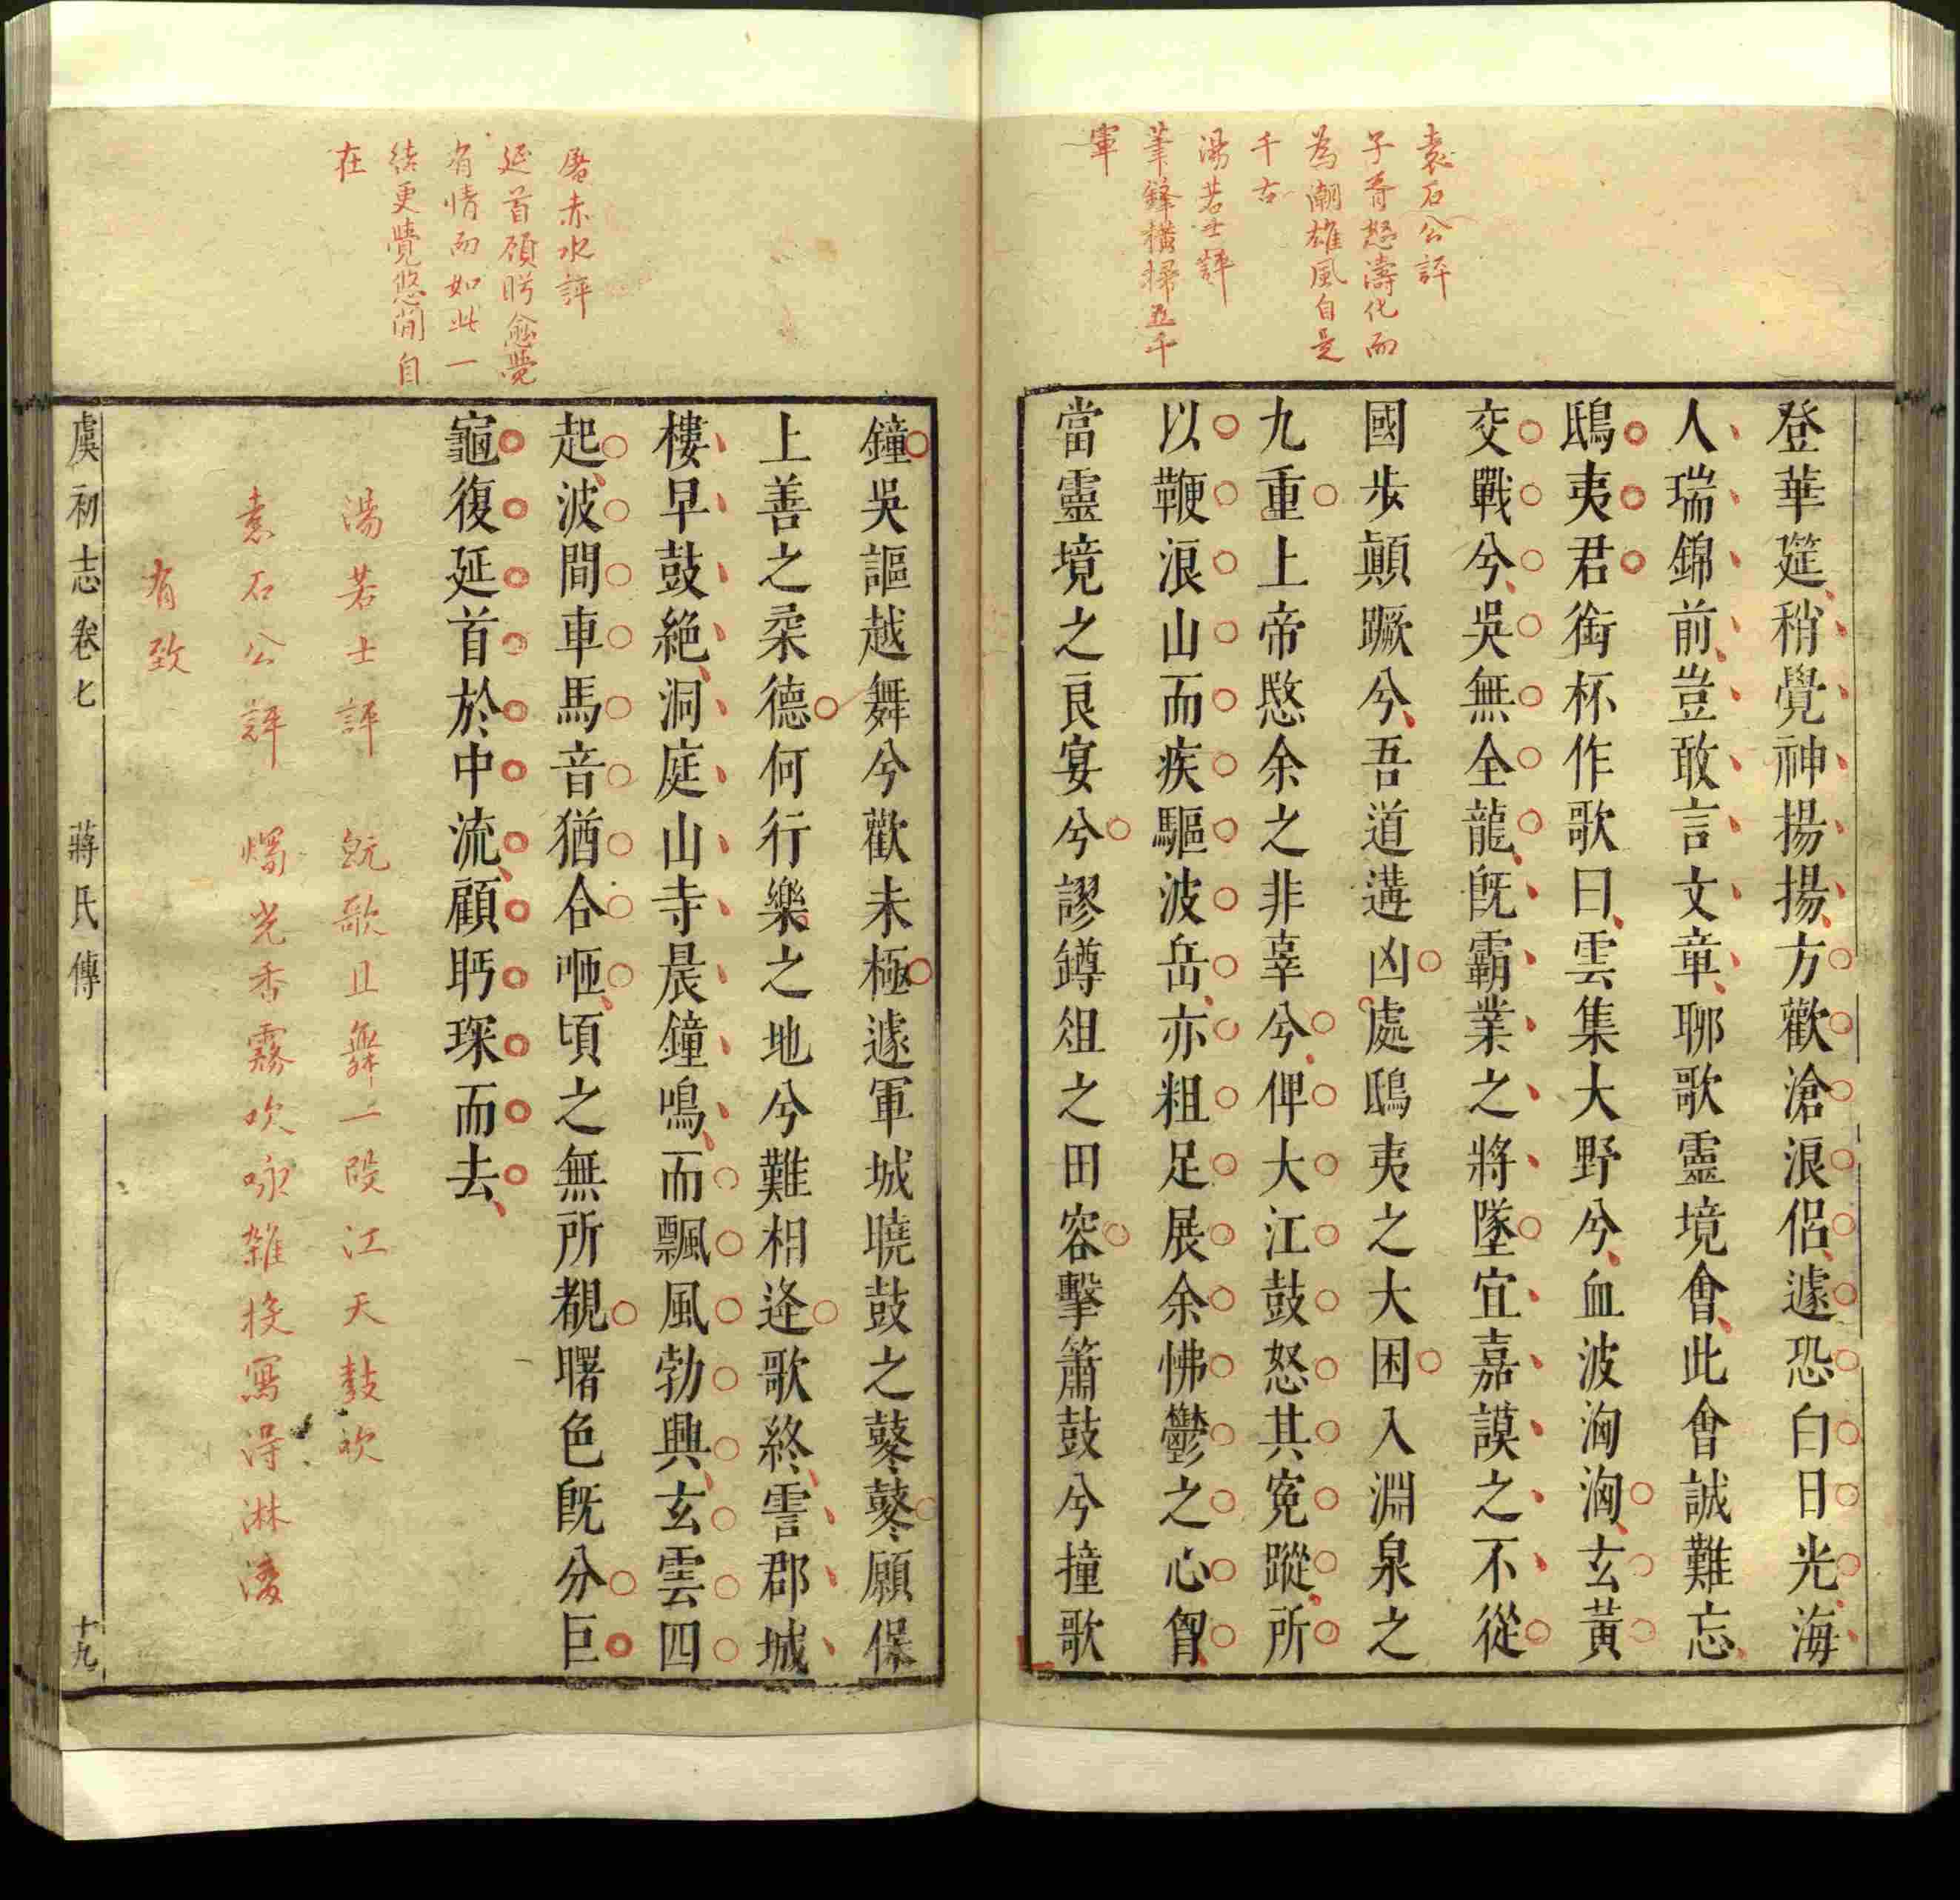 袁石公評
子胥怒濤化而
為潮雄風自是
千古
湯若士評
筆鋒橫掃五千
軍
登華筵稍覺神揚揚方歡滄浪侶遽恐白日光海
人瑞錦前豈敢言文章聊歌靈境會此會誠難忘
鴟夷君銜杯作歌曰雲集大野兮血波洶洶玄黃
交戰兮吳無全龍旣霸業之將墜宜嘉謨之不從
國步顚蹶兮吾道遘凶處鴟夷之大困入淵泉之
九重上帝愍余之非辜兮俾大江鼓怒其寃蹤所
以鞭浪山而疾驅波岳亦粗足展余怫鬱之心胷
當靈境之良宴兮謬鐏俎之田容擊簫鼓兮撞歌
屠赤水評
延首顧眄愈覺
有情而如此一
結更覺悠閒自
在
鐘吳謳越舞兮歡未極遽軍城曉鼓之鼕鼕願保
上善之柔德何行樂之地兮難相逢歌終雩郡城
樓早鼓絶洞庭山寺晨鐘鳴而飄風勃興玄雲四
起波間車馬音猶合咂頃之無所覩曙色旣分巨
龜復延首於中流顧眄琛而去
湯若士評　既歌且舞一段江天鼓吹
袁石公評　燭光香霧吹咏雜投寫得淋漓
有致
虞初志卷七　蔣氏傳　十九